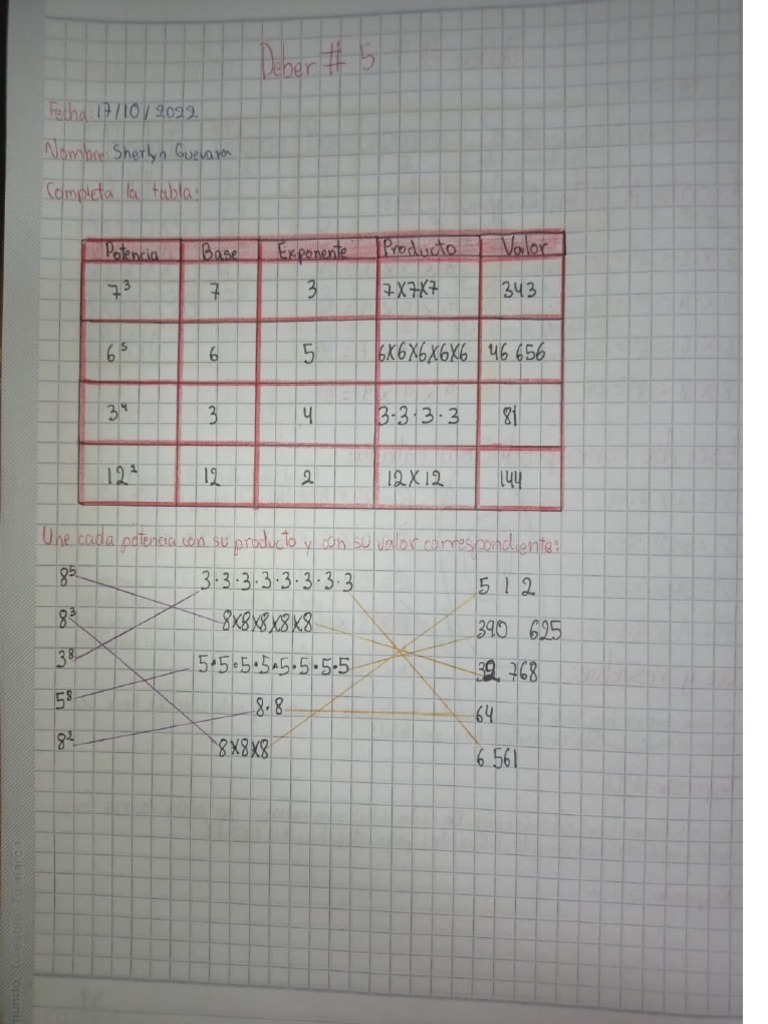 Deber # 5
Fecha: 17/10/2022
Nombre: Sherlyn Guevara
Completa la tabla:
Potencia Base Exponente Producto Valor
7³ 7 3 7X7X7 343
6⁵ 6 5 6X6X6X6X6 46 656
3⁴ 3 4 3·3·3·3 81
12² 12 2 12X12 144
Une cada potencia con su producto y con su valor correspondiente:
8⁵ 3·3·3·3·3·3·3·3 5 1 2
8³ 8X8X8X8X8 390 625
3⁸ 5·5·5·5·5·5·5·5 32 768
5⁸ 8·8 64
8² 8X8X8 6 561